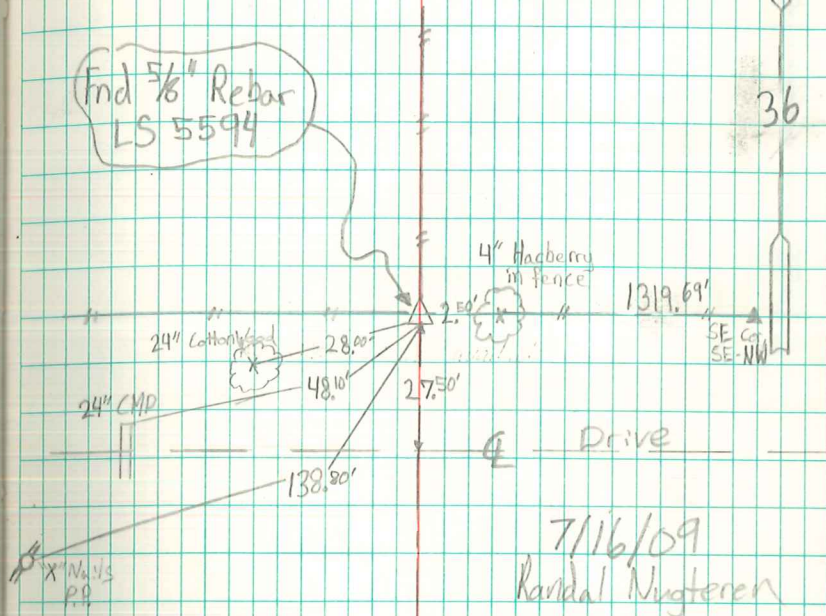 Fnd 5/8" Rebar
LS 5594
36
4" Hacberry
in fence
2.50'
1319.69'
SE Cor
SE-NW
24" Cottonwood
28.00'
48.10'
27.50'
24" CMP
℄ Drive
138.80'
"X" Nails
P.P.
7/16/09
Randal Nugteren